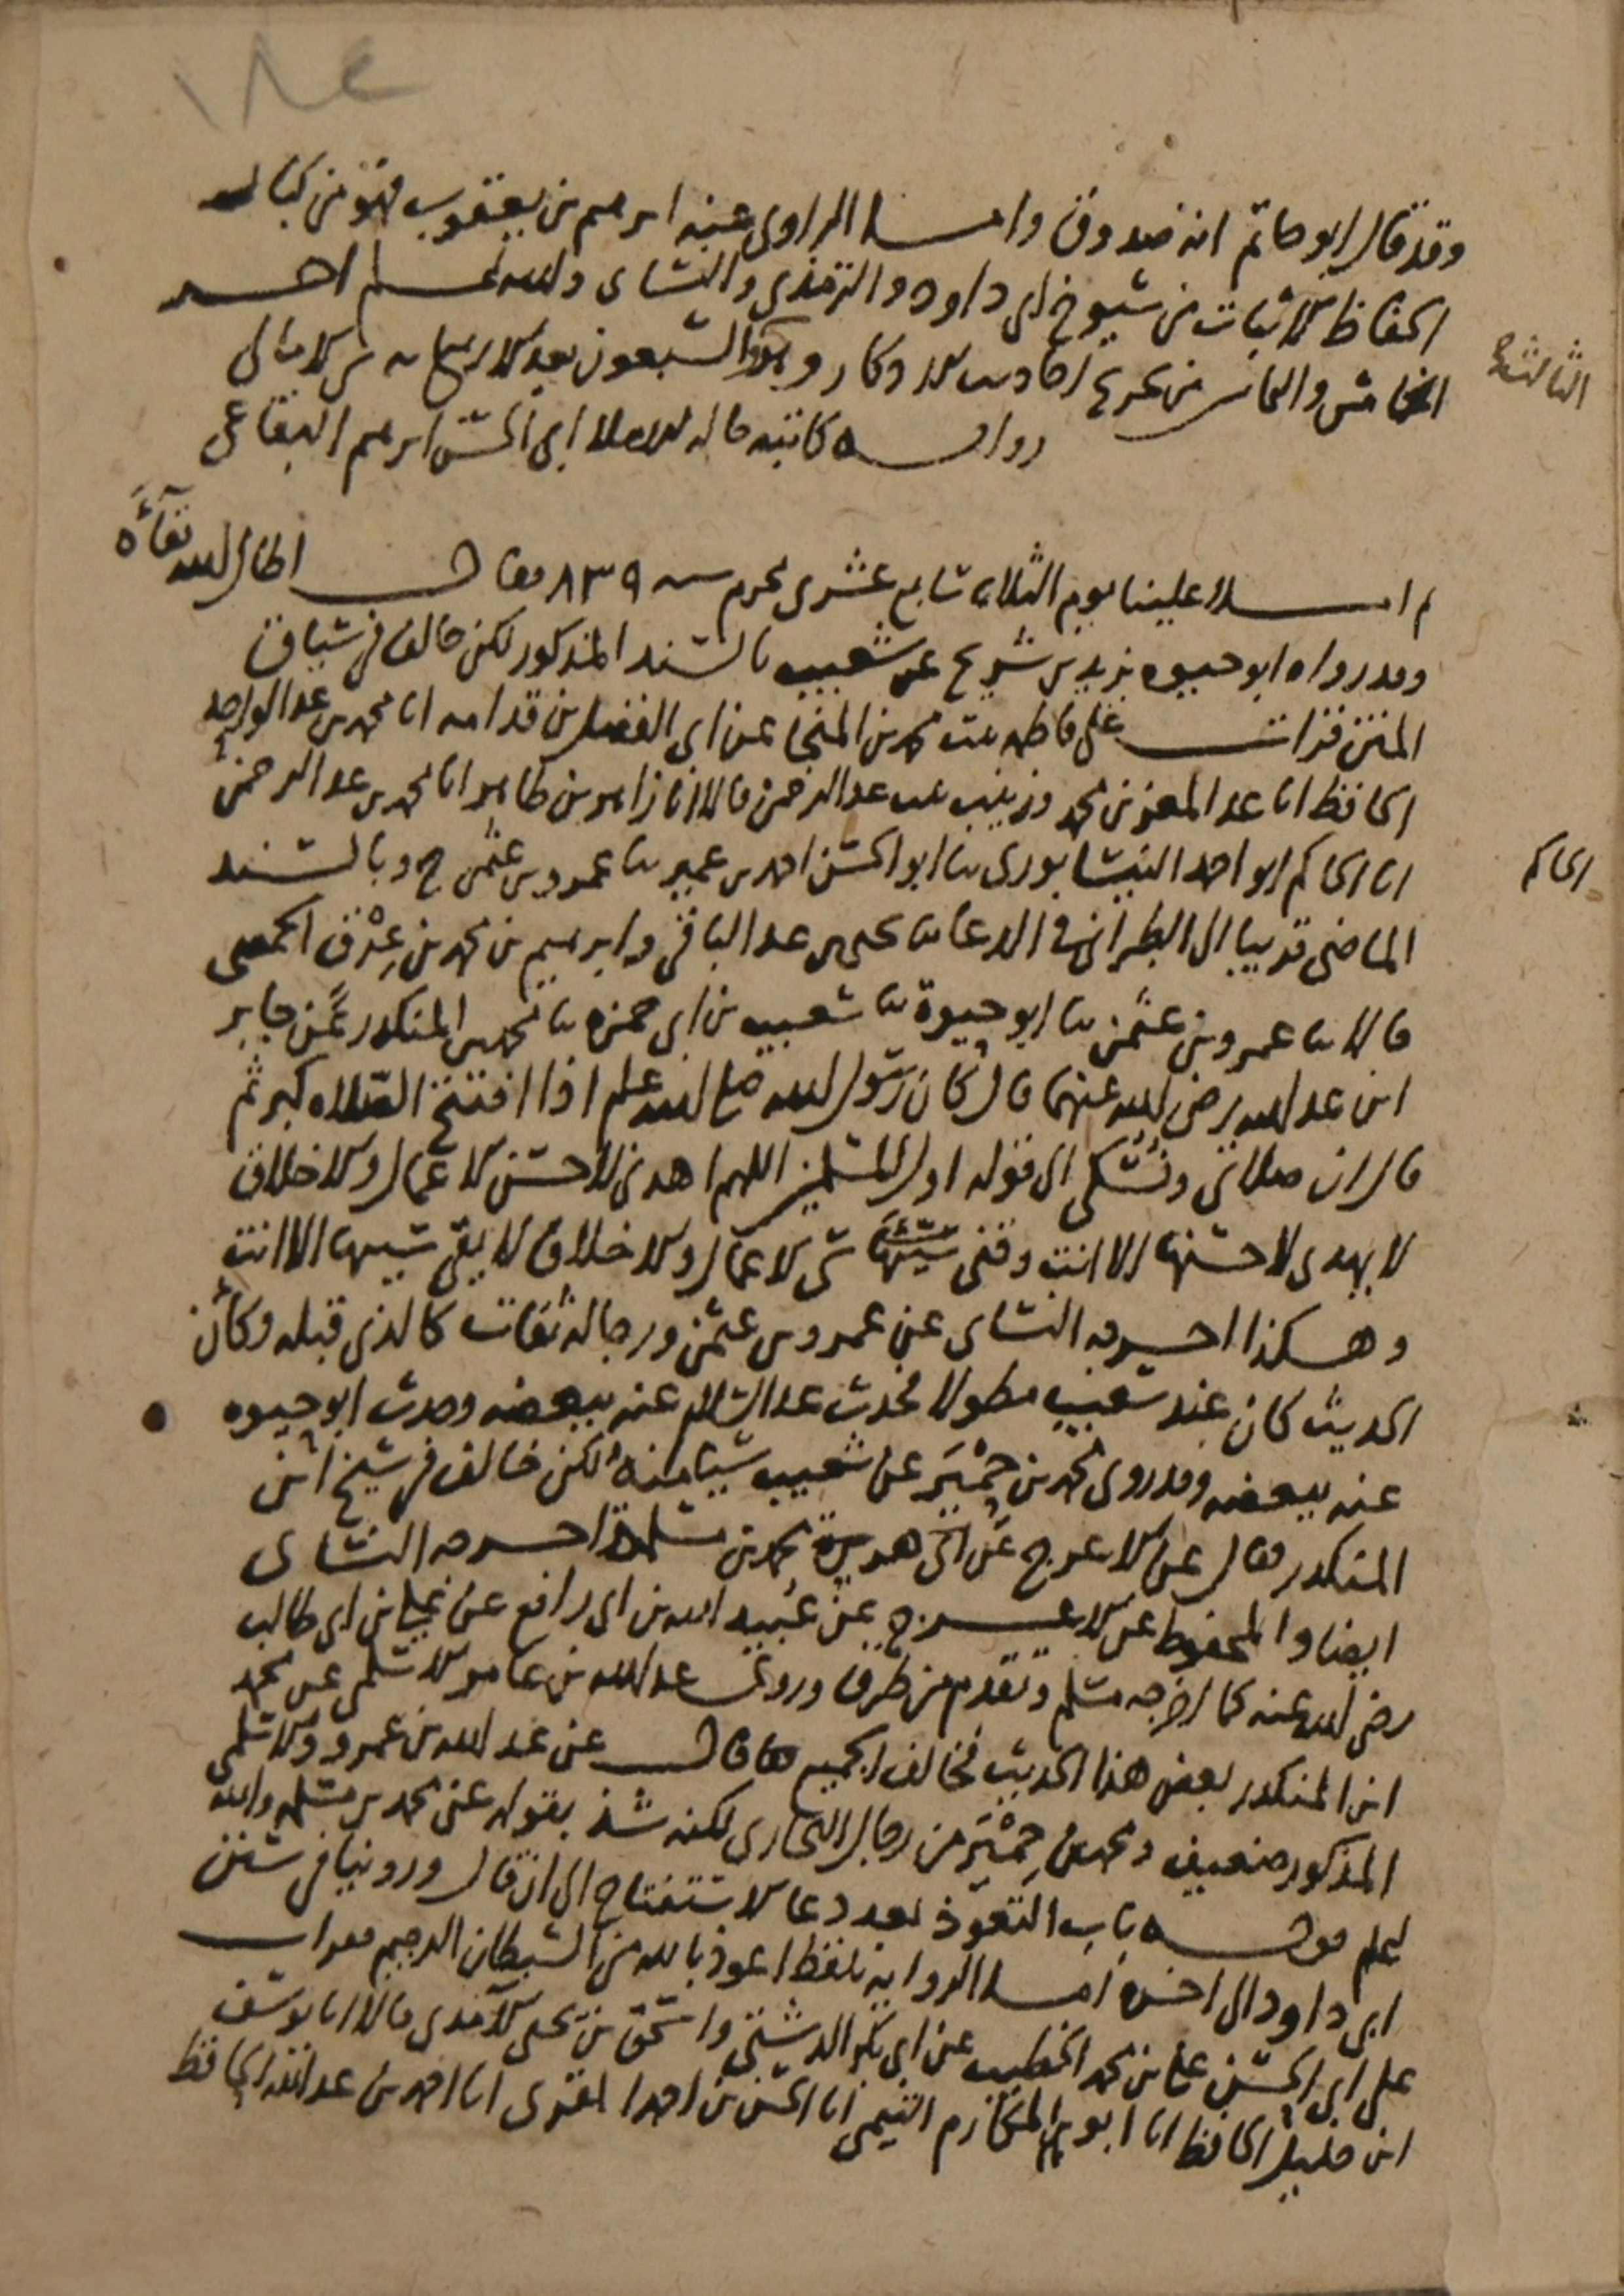 ١٨٤
وقد قال ابو حاتم انه صدوق واما الراوي عنه ابرهيم بن يعقوب فهو من كبار
الحفاظ الاثبات من شيوخ ابي داود والترمذي والنساي والله اعلم اخر
الخامس والتاسع من تخريج احاديث الاذكار وهو السبعون بعد الاربعمايه من الامالي
الثالثة
روايه كاتبه حاله الاملا ابي الحسن ابرهيم البقاعي
ثم املا علينا يوم الثلاثاء سابع عشري محرم سنه ٨٣٩ فقال اطال الله بقاءه
وقد رواه ابو حيوه يزيد بن شريح عن شعيب بالسند المذكور لكن خالف في سياق
المتن قرات على فاطمه بنت محمد بن المنجا عن ابي الفضل بن قدامه انا محمد بن عبد الواحد
الحافظ انا عبد المعز بن محمد وزينب بنت عبد الرحمن قالا انا زاهر بن طاهر انا محمد بن عبد الرحمن
انا الحاكم ابو احمد النيسابوري ثنا ابو الحسن احمد بن عمير ثنا عمرو بن عثمن ح وبالسند
الحاكم
الماضي قريبا الى الطبراني في الدعا ثنا يحيى بن عبد الباقي وابرهيم بن محمد بن عرق الحمصي
قالا ثنا عمرو بن عثمن ثنا ابو حيوة ثنا شعيب بن ابي حمزه ثنا محمد بن المنكدر عن جابر
ابن عبد الله رضي الله عنهما قال كان رسول الله صلى الله عليه وسلم اذا افتتح الصلاه كبر ثم
قال ان صلاتي ونسكي الى قوله اول المسلمين اللهم اهدني لاحسن الاعمال والاخلاق
لا يهدي لاحسنها الا انت وقني سيئها سي الاعمال والاخلاق لا يقي سيها الا انت
وهكذا اخرجه النساي عن عمرو بن عثمن ورجاله ثقات كالذي قبله وكأن
الحديث كان عند شعيب مطولا فحدث عبد السلام عنه ببعضه وحدث ابو حيوه
عنه ببعضه وقد روى محمد بن حِمْيَر عن شعيب شيا منه لكن خالف في شيخ ابن
المنكدر فقال عن الاعرج عن محمد بن مسلمة اخرجه النساي
ايضا والمحفوظ عن الاعرج عن عبيد الله بن ابي رافع عن علي بن ابي طالب
رضي الله عنه كما اخرجه مسلم وتقدم من طرق وروى عبد الله بن عامر الاسلمي عن محمد
ابن المنكدر بعض هذا الحديث فخالف الجميع فقال عن عبد الله بن عمرو والاسلمي
المذكور ضعيف ومحمد بن حِمْيَر من رجال البخاري لكنه شذ بقوله عن محمد بن مسلمه والله
اعلم قوله باب التعوذ بعد دعا الاستفتاح الى ان قال وروينا في سنن
ابي داود الى اخره اما الرواية بلفظ اعوذ بالله من الشيطان الرجيم فقرات
على ابي الحسن علي بن محمد الخطيب عن ابي بكر الدشتي واسحق بن يحيى الآمدي قالا انا يوسف
ابن خليل الحافظ انا ابو المكارم التيمي انا الحسن بن احمد المقري انا احمد بن عبد الله الحافظ